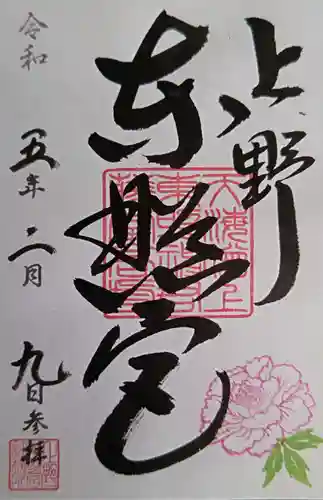 上野
東照宮
令和
五年
二月
九日参拝